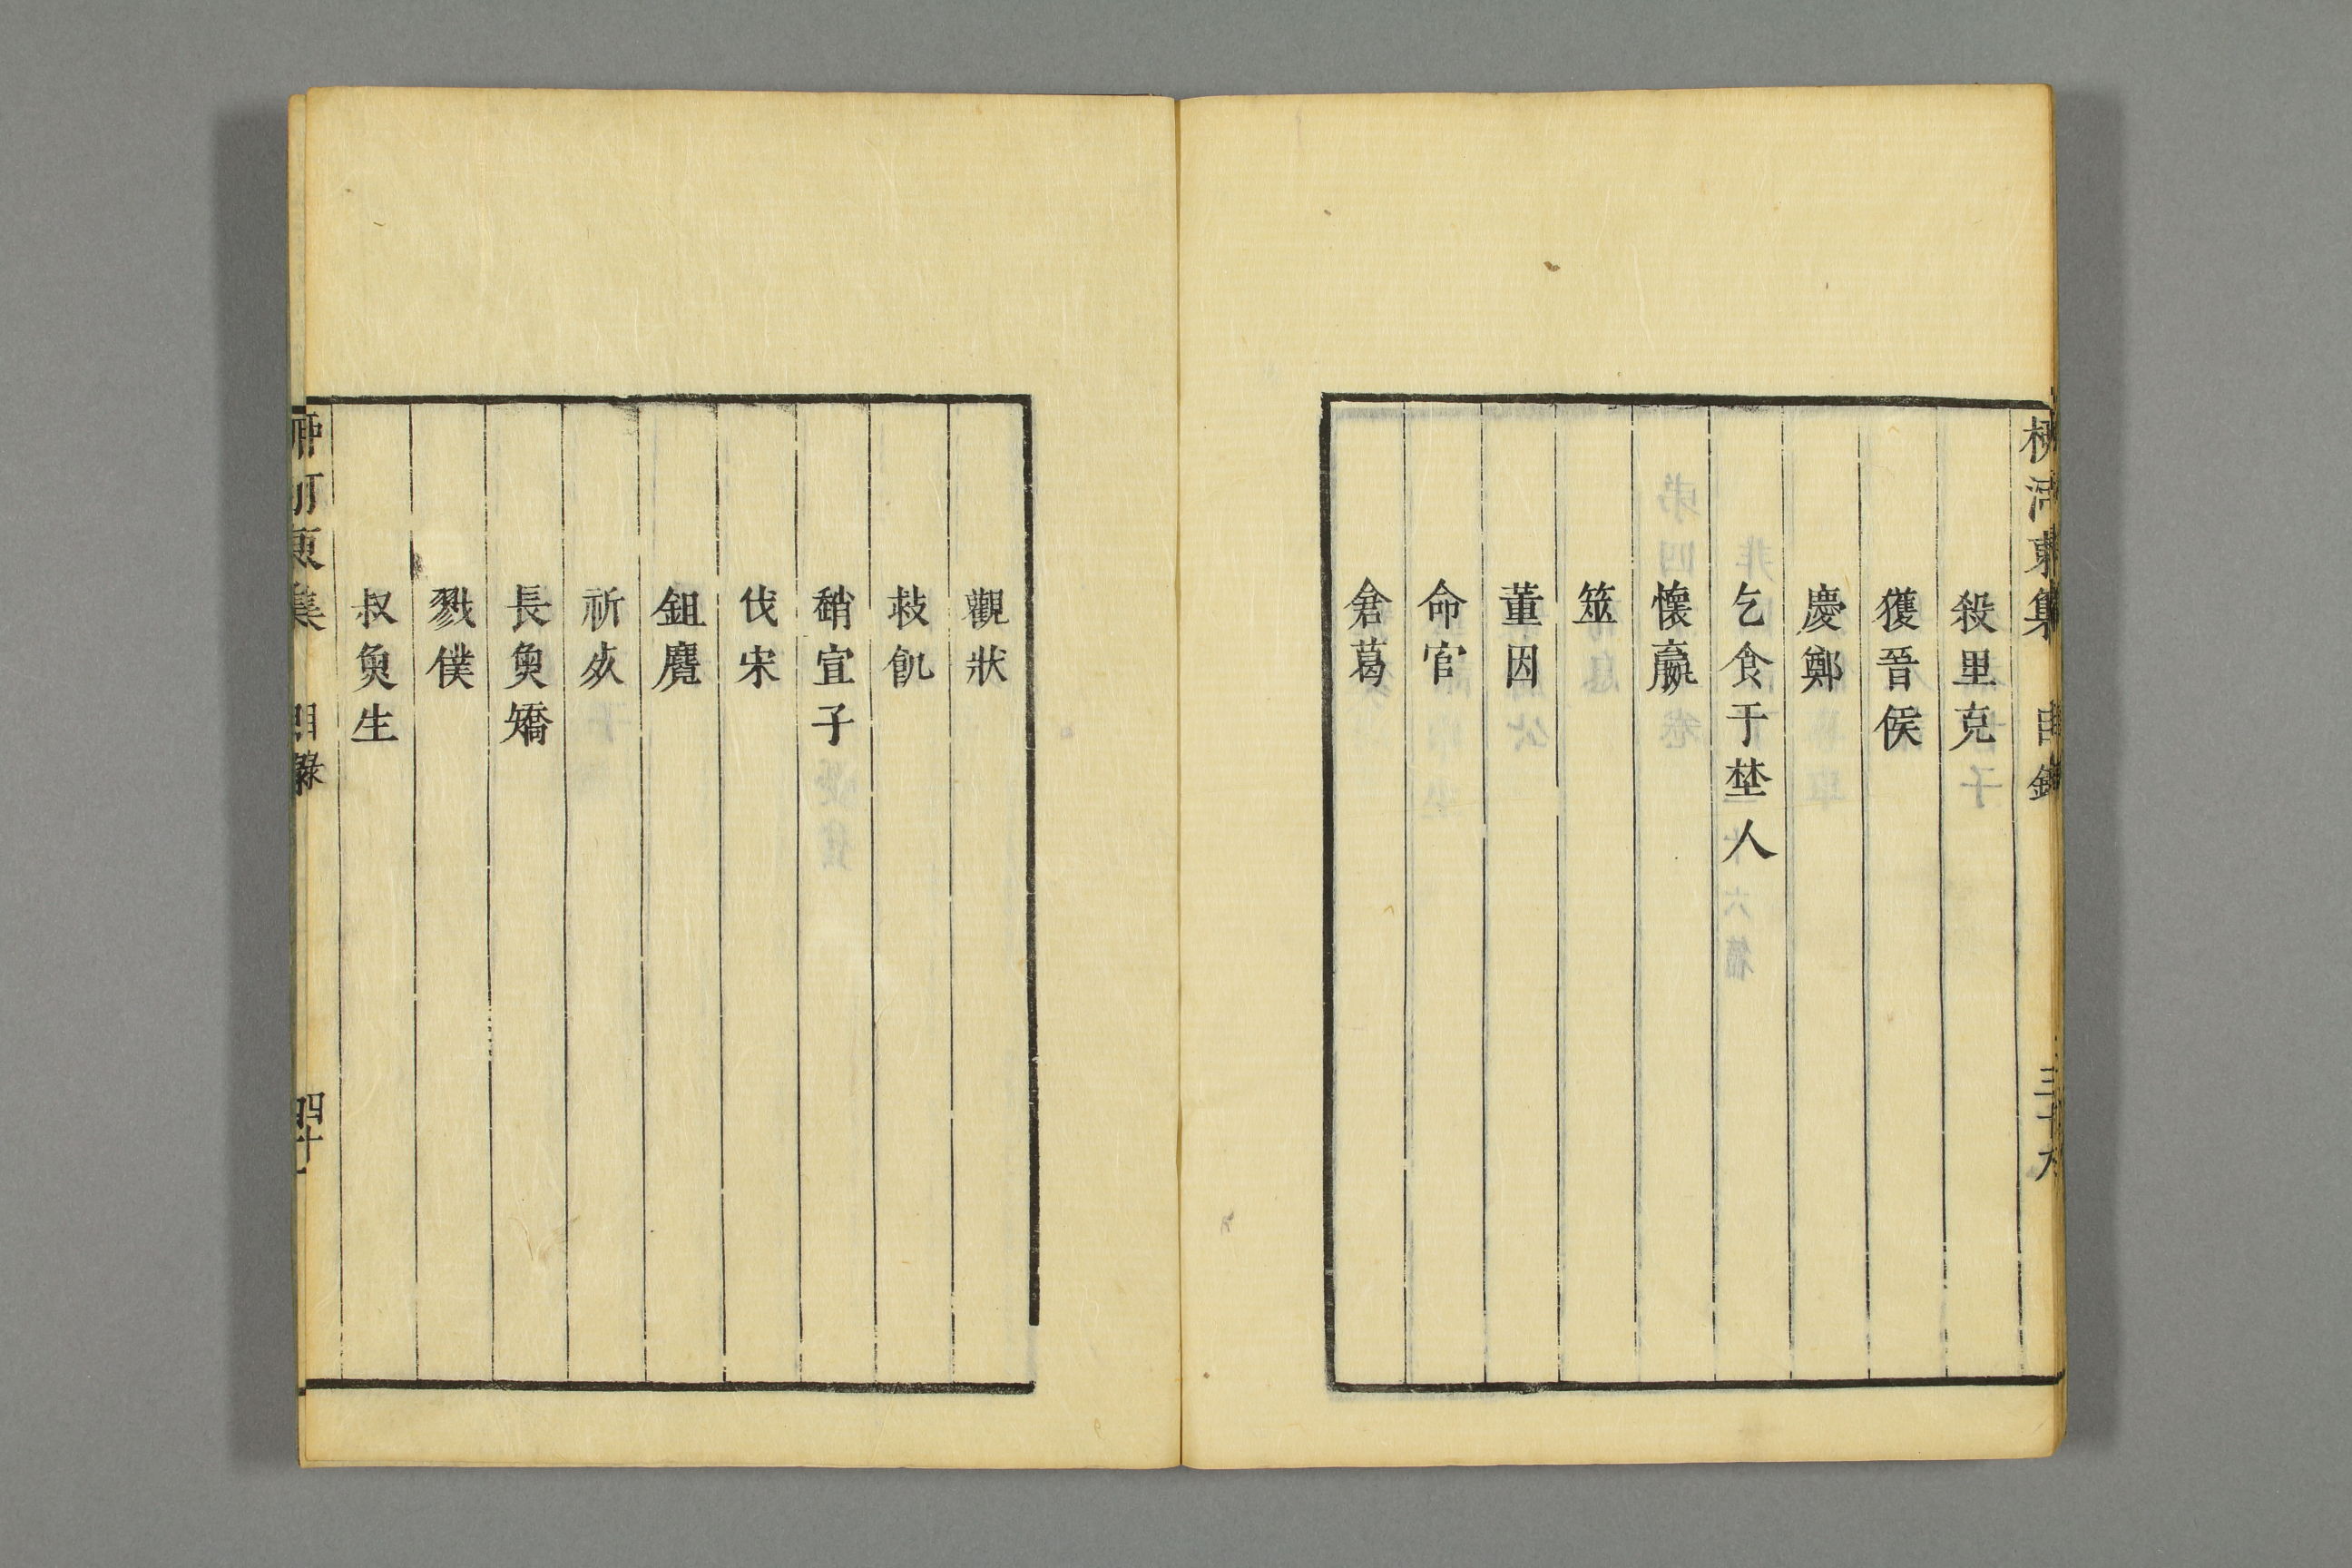 柳河東集 目錄 三十六
殺里克
獲晉侯
慶鄭
乞食于埜人
懷嬴
筮
董因
命官
倉葛
觀狀
救飢
趙宣子
伐宋
鉏麑
祈死
長魚矯
戮僕
叔魚生
柳河東集 目錄 四十